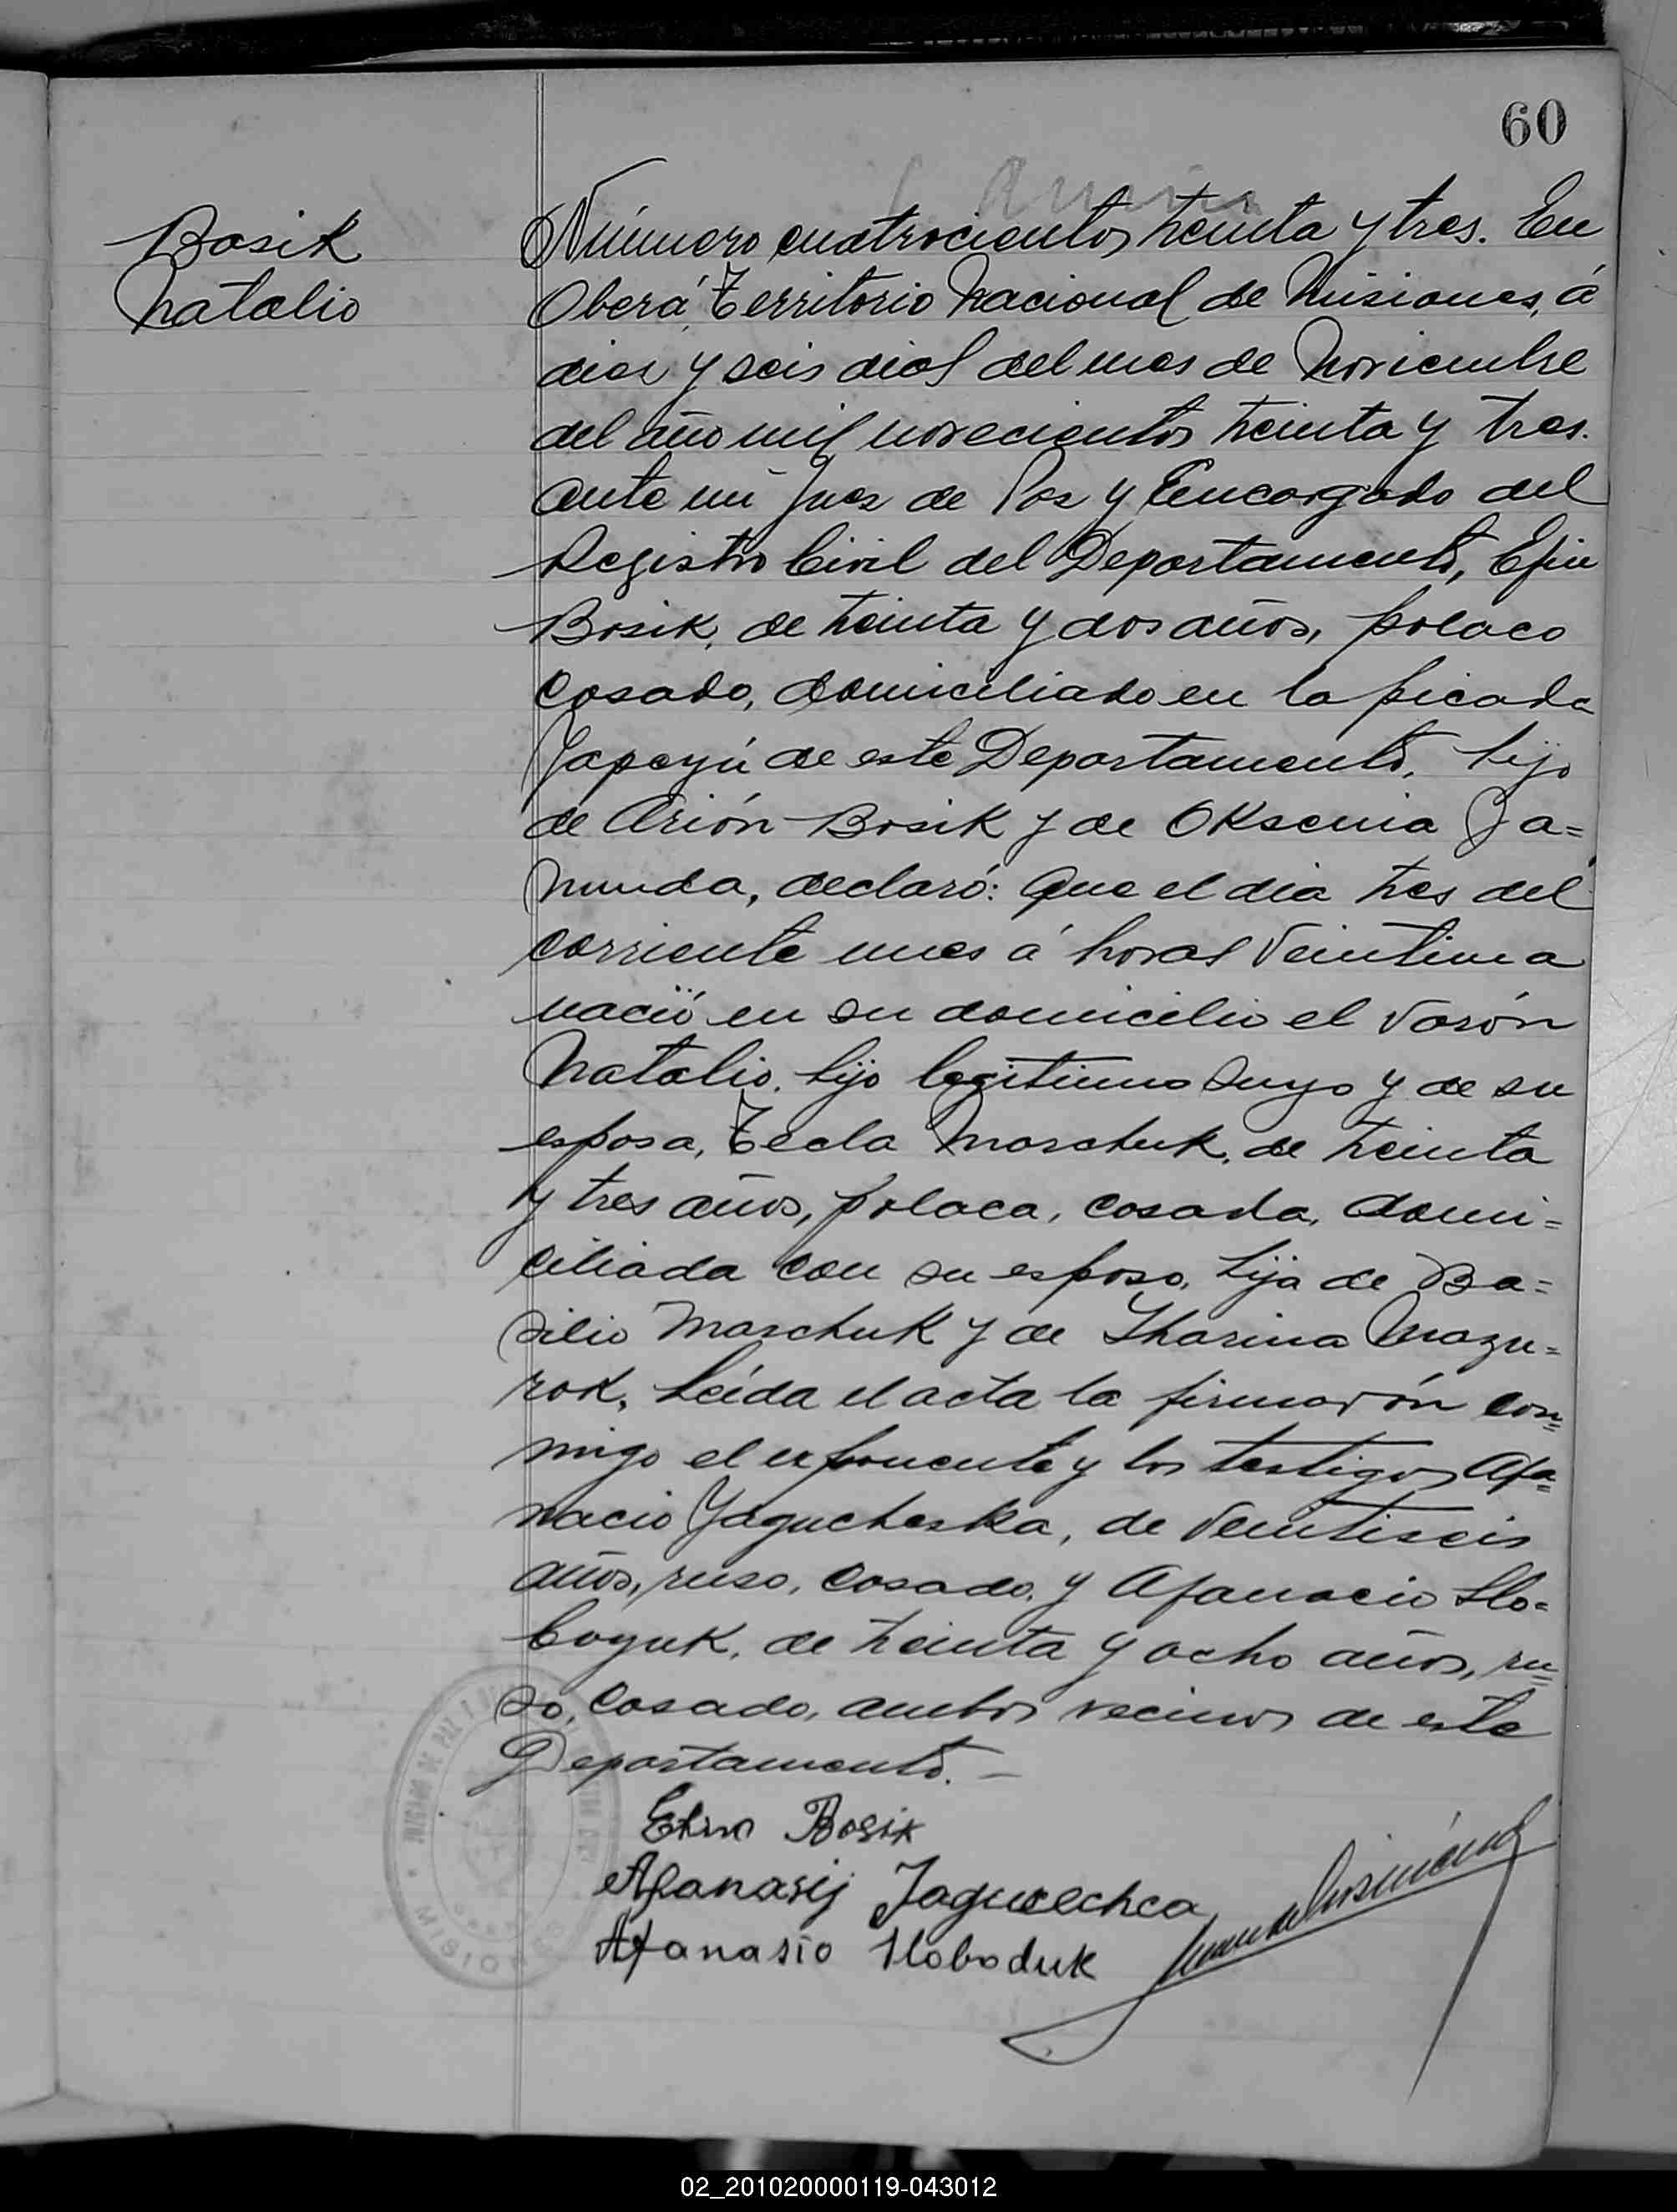 60
Bosik
Natalio
Número cuatrocientos treinta y tres. En
Oberá, Territorio Nacional de Misiones, á
diez y seis dias del mes de Noviembre
del año mil novecientos treinta y tres.
ante mi Juez de Paz y Encargado del
Registro Civil del Departamento, Efin
Bosik, de treinta y dos años, polaco
casado, domiciliado en la picada
Yapeyú de este Departamento, hijo
de Arión Bosik y de Oksenia Ja=
munda, declaró: Que el dia tres del
corriente mes á horas veintiuna
nació en su domicilio el varón
Natalio, hijo legítimo suyo y de su
esposa, Tecla Marchuk, de treinta
y tres años, polaca, casada, domi=
ciliada con su esposo, hija de Ba=
silio Marchuk y de Iharina Mazu=
rok. Leída el acta la firmarón con=
migo el exponente y los testigos Afa=
nacio Yagucheska, de veintiseis
años, ruso, casado, y Afanacio Slo=
boyuk, de treinta y ocho años, ru=
so, casado, ambos vecinos de este
Departamento. —
Efim Bosik
Afanasij Jaguschca
Afanasio Sloboduk
JUZGADO DE PAZ
MISIONES
02_201020000119-043012